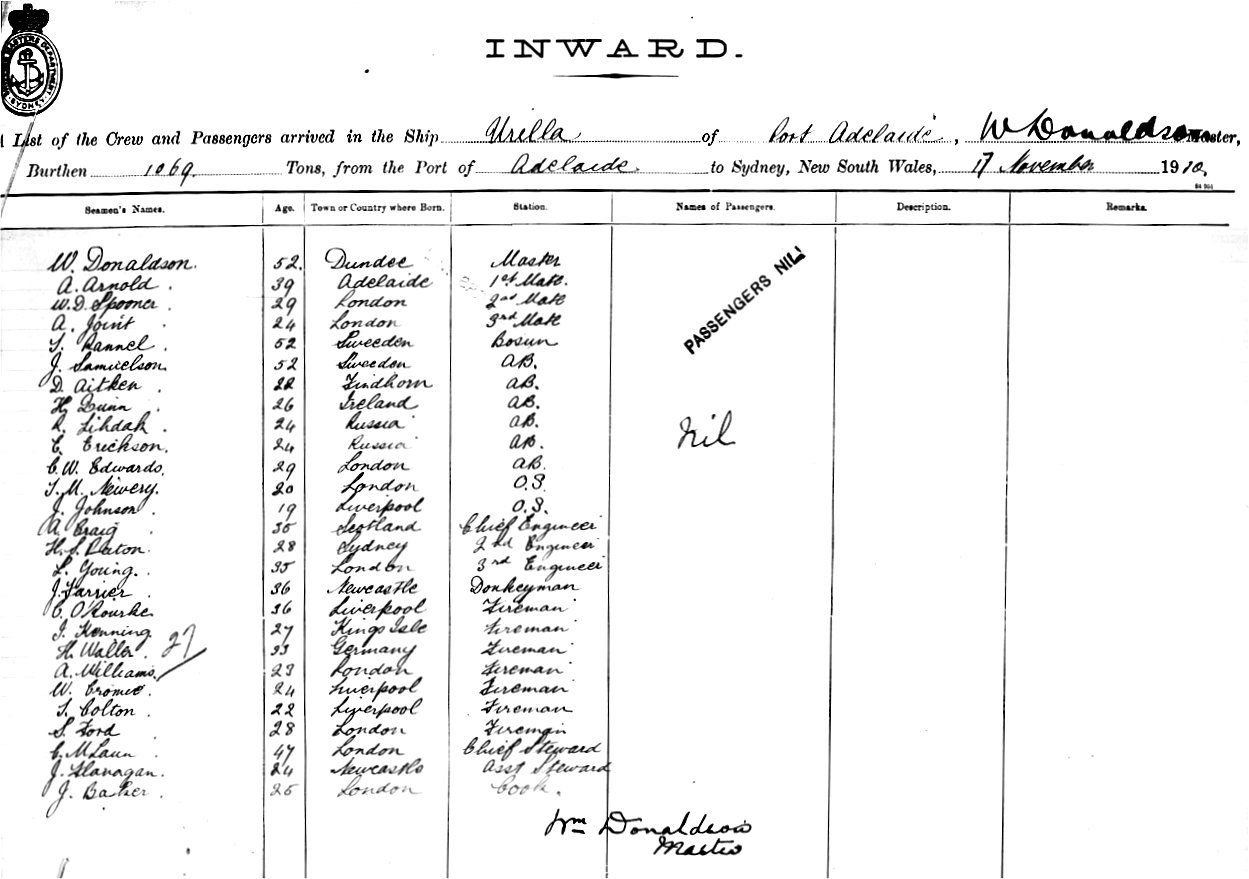 INWARD.
A List of the Crew and Passengers arrived in the Ship Urella of Port Adelaide, W Donaldson Master,
Burthen 1069. Tons, from the Port of Adelaide. to Sydney, New South Wales, 17 November 1910.
Seamen's Names. Age. Town or Country where Born. Station. Names of Passengers. Description. Remarks.
W. Donaldson. 52. Dundee Master
A. Arnold. 39 Adelaide 1st Mate.
W. D. Spooner. 29 London 2nd Mate
A. Joint. 24 London 3rd Mate
T. Rannel. 52 Sweeden Bosun
J. Samuelson. 52 Sweeden AB.
D. Aitken. 22 Findhorn AB.
H. Quinn. 26 Ireland AB.
R. Lihdak. 24 Russia AB.
E. Erickson. 24 Russia AB.
C. W. Edwards. 29 London AB
T. M. Newery. 20 London O.S.
J. Johnson. 19 Liverpool O.S.
A Craig. 35 Scotland Chief Engineer
H. S. Paton. 28 Sydney 2nd Engineer
L. Young. 35 London 3rd Engineer
J. Farrier. 36 Newcastle Donkeyman
C. O'Rourke 36 Liverpool Fireman
J. Kenning 27 Kings Isle Fireman
H. Waller. 33 Germany Fireman
A. Williams. 23 London Fireman
W. Cromie. 24 Liverpool Fireman
T. Colton. 22 Liverpool Fireman
S. Ford. 28 London Fireman
C. McLaun. 47 London Chief Steward
J. Flanagan. 24 Newcastle Asst Steward
J. Baker. 25 London Cook.
27
PASSENGERS NIL
Nil
Wm Donaldson
Master